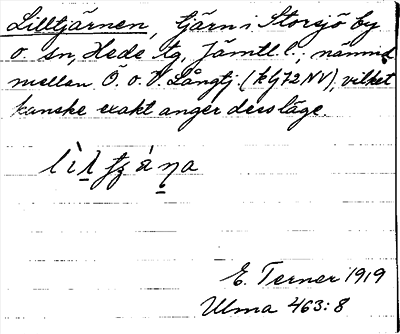 Lilltjärnen, tjärn i Storsjö by
o. sn, Hede tg, Jämtl. l.; nämnd
mellan Ö. o. V. Långtj. (kG72NV), vilket
kanske exakt anger dess läge.
E. Terner 1919
Ulma 463:8